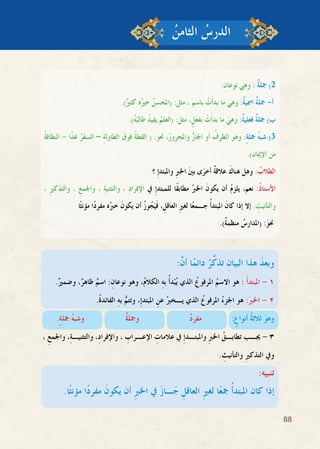 الدرسُ الثامنُ
2) جملةٌ : وهي نوعان:
أ- جملةٌ اسميةٌ: وهي ما بدأَتْ باسمٍ ، مثل: (المحسنُ خيرُه كثيرٌ).
ب) جملةٌ فعليةٌ: وهي ما بدأَتْ بفعلٍ، مثل: (العلمُ يفيدُ طالبَهُ).
3) شبهُ جملةٍ: وهو الظرفُ أو الجارُّ والمجرورُ، نحو: ( القطةُ فوقَ الطاولةِ – السفرُ غدًا – النظافةُ
من الإيمانِ).
الطلابُ: وهل هناك علاقةٌ أخرَى بينَ الخبرِ والمبتدإِ ؟
الأستاذُ: نعم، يلزمُ أن يكونَ الخبرُ مطابقًا للمبتدإِ في الإفرادِ ، والتثنيةِ ، والجمعِ ، والتذكيرِ ،
والتأنيثِ. إلا إذا كانَ المبتدأُ جـمعًا لغيرِ العاقلِ، فيَجُوزُ أن يكونَ خبرُه مفردًا مؤنثًا
نحوَ: (المدارسُ منظمةٌ).
وبعدَ هذا البيانِ تذكَّرْ دائمًا أنَّ:
١ – المبتدأَ : هو الاسمُ المرفوعُ الذي يُبْدَأُ بِه الكلامُ، وهو نوعان: اسمٌ ظاهرٌ، وضميرٌ.
٢ – الخبرَ: هو الجزءُ المرفوعُ الذي يـخبرُ عن المبتدإِ، وتتمُّ به الفائدةُ.
وهو ثلاثةُ أنواعٍ: مفردٌ وجملةٌ وشبهُ جملةٍ.
٣ – يجـب تطابـقُ الخبرِ والمبتـدإِ في علاماتِ الإعـرابِ ، والإفرادِ، والتثنيـةِ، والجمعِ ،
وفي التذكيرِ والتأنيثِ.
تنبيه:
إذا كان المبتدأُ جمعًا لغيرِ العاقلِ جـازَ في الخبرِ أن يكونَ مفردًا مؤنثًا.
88